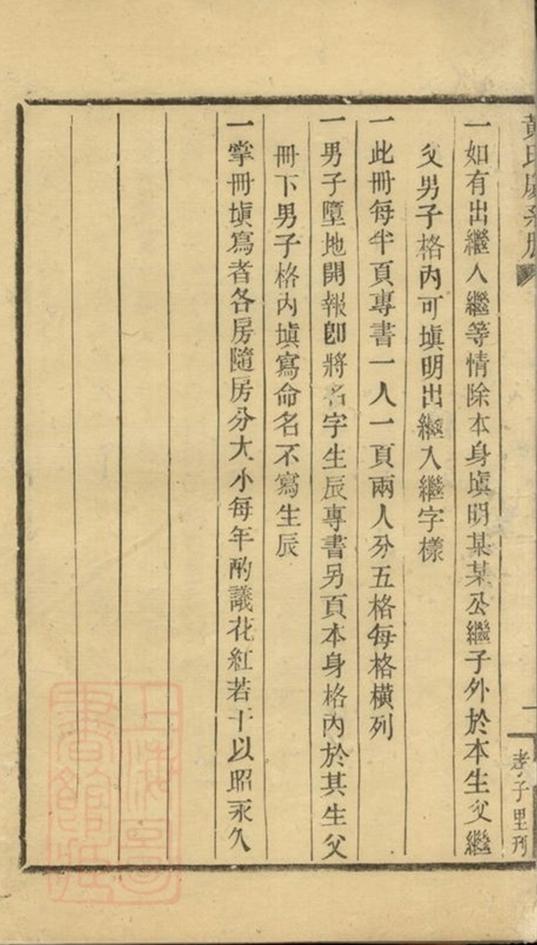 黃氏慶系册
一
孝子里刊
一如有出繼入繼等情除本身塡明某某公繼子外於本生父繼
父男子格內可塡明出繼入繼字樣
一此冊每半頁專書一人一頁兩人分五格每格橫列
一男子墮地開報卽將名字生辰專書另頁本身格內於其生父
冊下男子格內塡寫命名不寫生辰
一掌冊塡寫者各房隨房分大小每年酌議花紅若干以昭永久
上海圖
書館藏